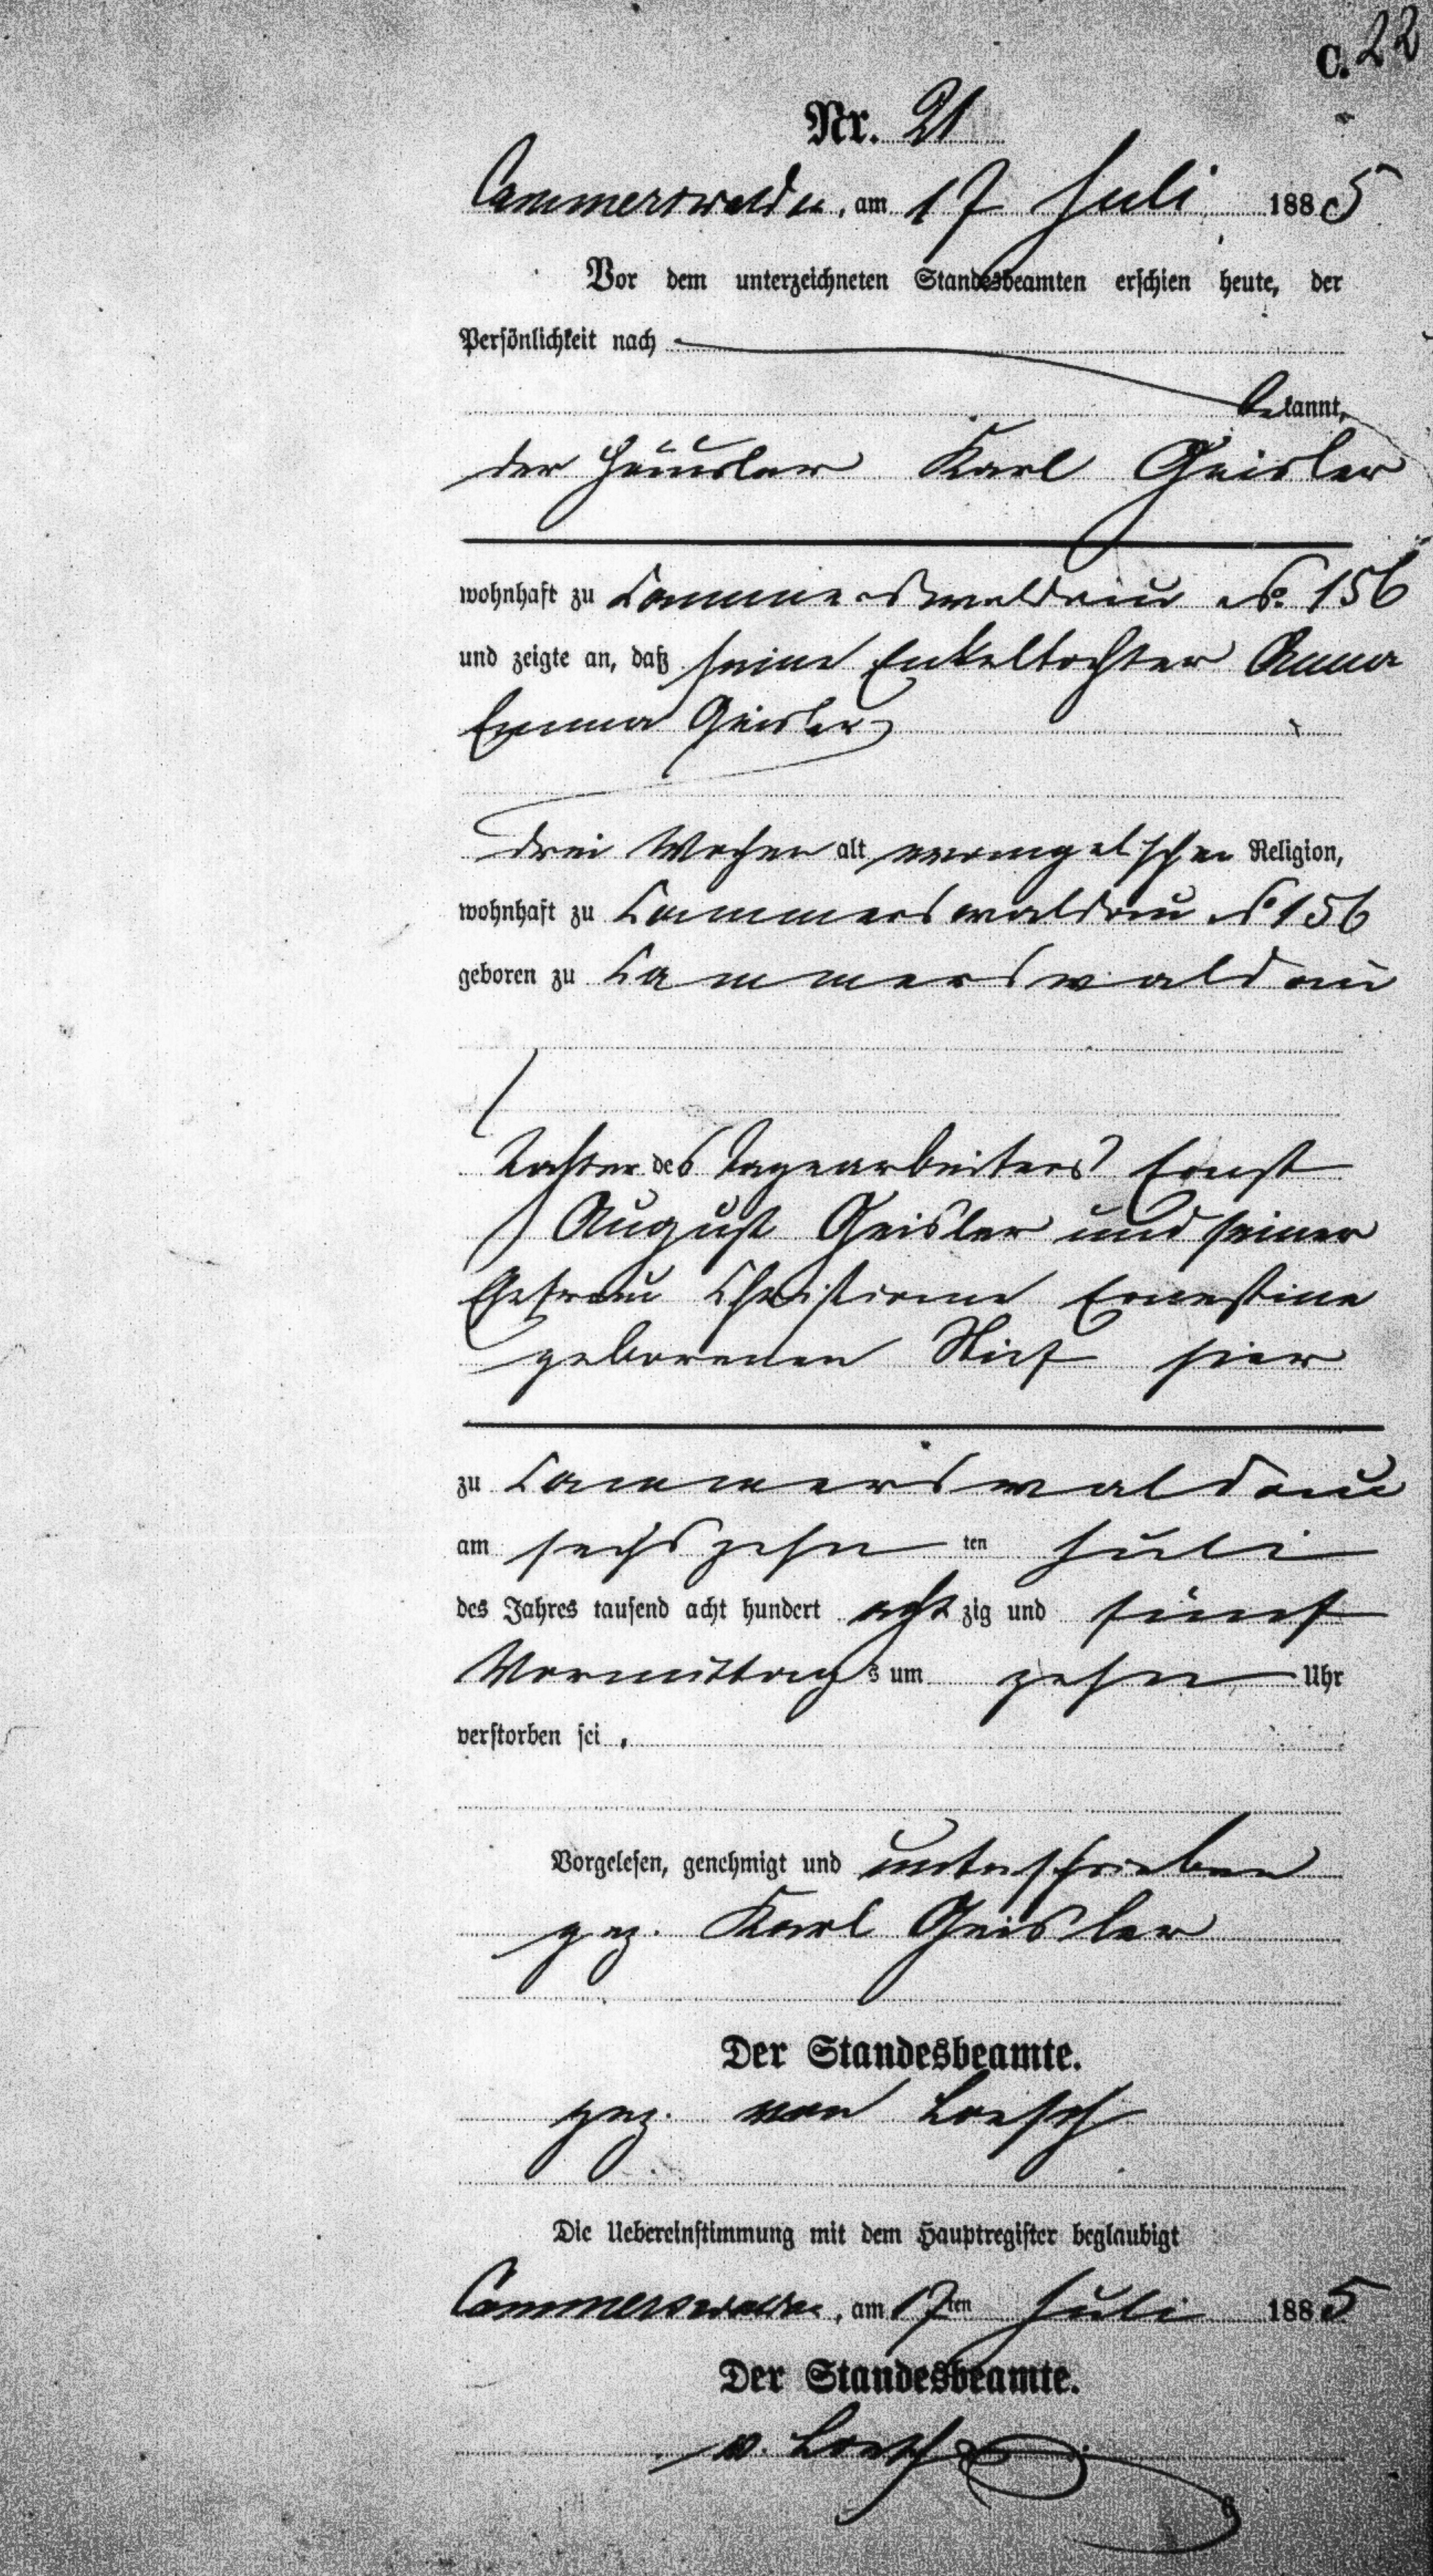 C. 22
Nr. 21
Cammerswaldau, am 17 Juli 1885
Vor dem unterzeichneten Standesbeamten erschien heute, der
Persönlichkeit nach
bekannt,
der Häusler Karl Geisler
wohnhaft zu Cammerswaldau No. 156
und zeigte an, daß seine Enkeltochter Anna
Emma Geisler
drei Wochen alt evangelscher Religion,
wohnhaft zu Cammerswaldau No 156
geboren zu Cammerswaldau
Tochter des Tagearbeiters Ernst
August Geisler und seiner
Ehefrau Christiane Ernestine
geborenen hier
zu Cammerswaldau
am sechszehn ten Juli
des Jahres tausend acht hundert acht zig und fünf
Vormittag s um zehn Uhr
verstorben sei.
Vorgelesen, genehmigt und unterschrieben
gez. Karl Geisler
Der Standesbeamte.
gez. von Loesch
Die Uebereinstimmung mit dem Hauptregister beglaubigt
Cammerswaldau, am 17ten Juli 1885
Der Standesbeamte.
v. Loesch